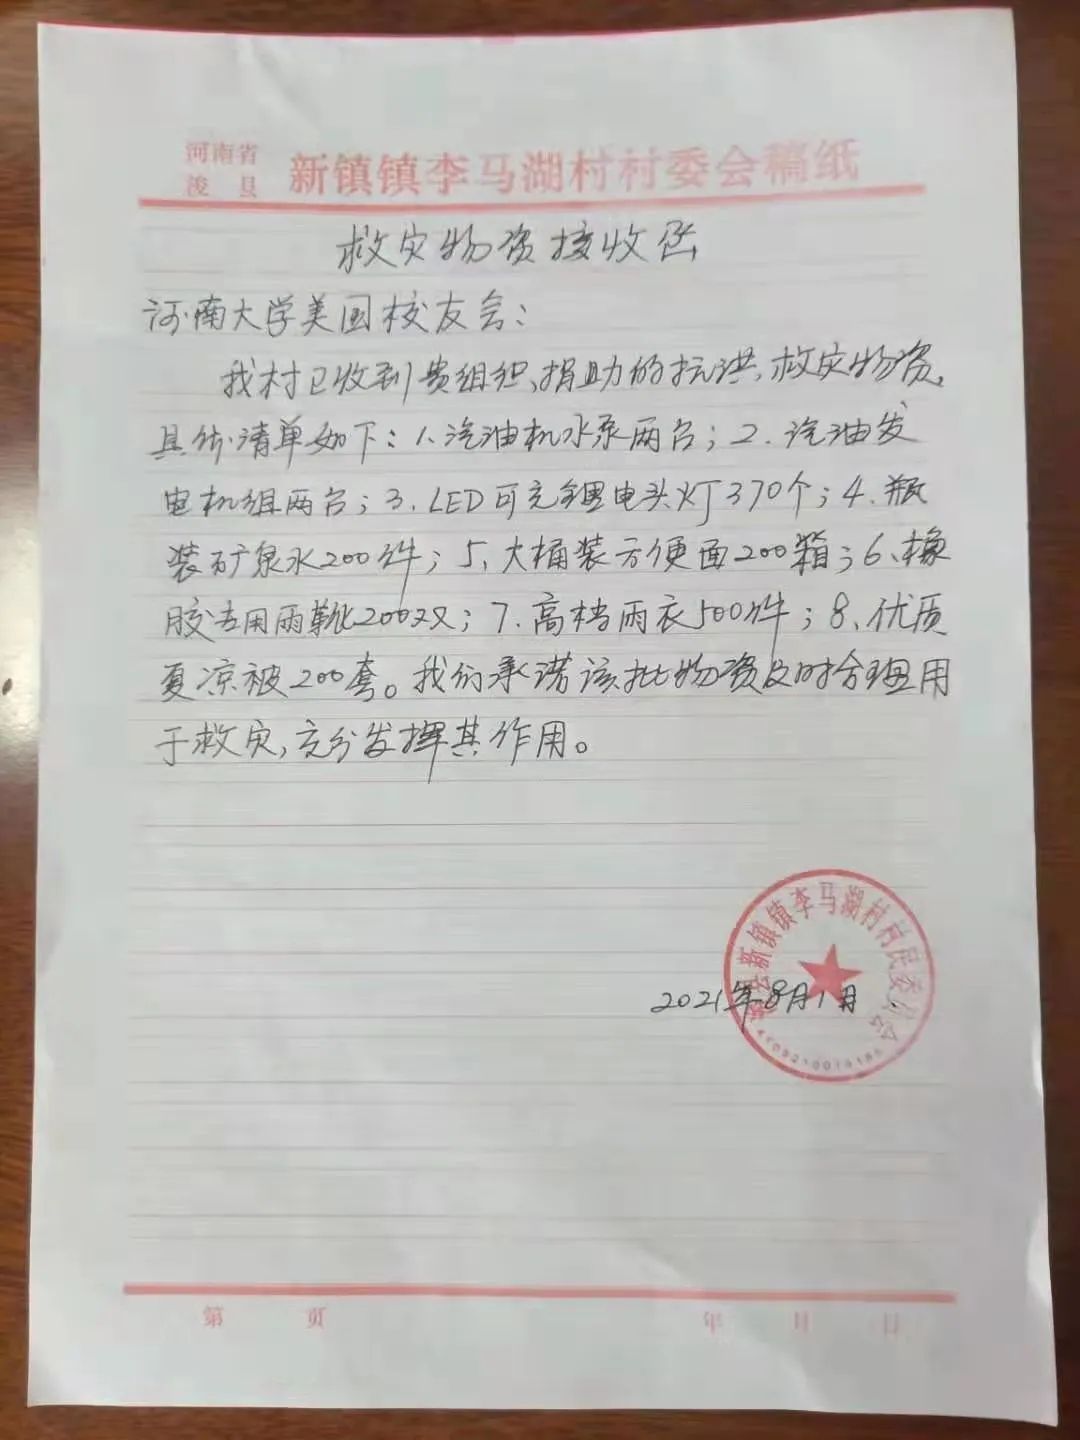 河南省
浚县
新镇镇李马湖村村委会稿纸
救灾物资接收函
河南大学美国校友会：
我村已收到贵组织、捐助的抗洪、救灾物资,
具体清单如下：1、汽油机水泵两台；2、汽油发
电机组两台；3、LED可充锂电头灯370个；4、瓶
装矿泉水200件；5、大桶装方便面200箱；6、橡
胶专用雨靴200双；7、高档雨衣500件；8、优质
夏凉被200套。我们承诺该批物资及时合理用
于救灾,充分发挥其作用。
浚县新镇镇李马湖村村民委员会
2021年8月1日
第 页
年 月 日